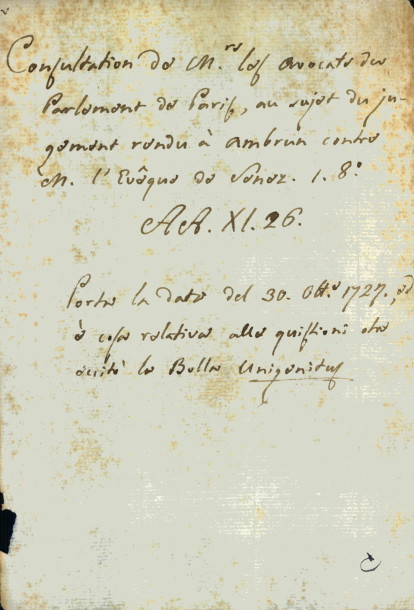 Consultation de M.rs les Avocats du
Parlement de Paris, au sujet du ju-
gement rendu à Ambrun contre
M. l'Evêque de Senez. 1. 8.°
AA. XI. 26.
Porta la data del 30. Ott.e 1727., ed
è cosa relativa alle quistioni che
eccitò la Bolla Unigenitus